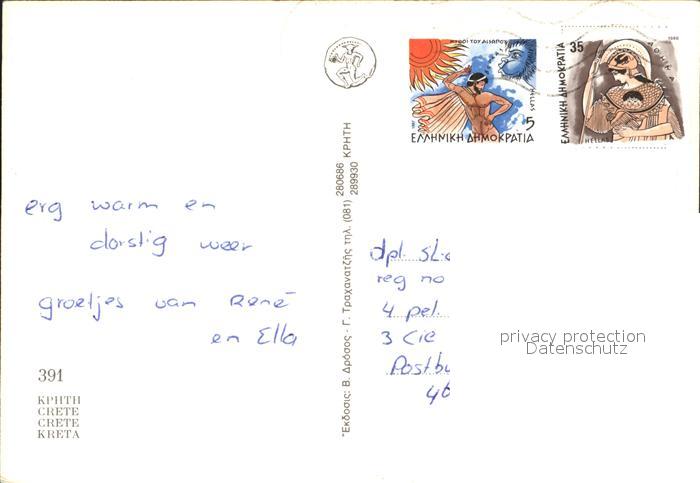 ΜΥΘΟΙ ΤΟΥ ΑΙΣΩΠΟΥ
HELLAS
5
1987
ΕΛΛΗΝΙΚΗ ΔΗΜΟΚΡΑΤΙΑ
35
1986
ΑΘΗΝΑ
ΕΛΛΗΝΙΚΗ ΔΗΜΟΚΡΑΤΙΑ
HELLAS
erg warm en
dorstig weer
groetjes van René
en Ella
391
ΚΡΗΤΗ
CRETE
CRETE
KRETA
Ἔκδοσις: Β. Δρόσος - Γ. Τραχανατζῆς τηλ. (081) 280686 289930 ΚΡΗΤΗ
dpl. SL
reg no
4 pel.
3 Cie
Postbu
40
privacy protection
Datenschutz